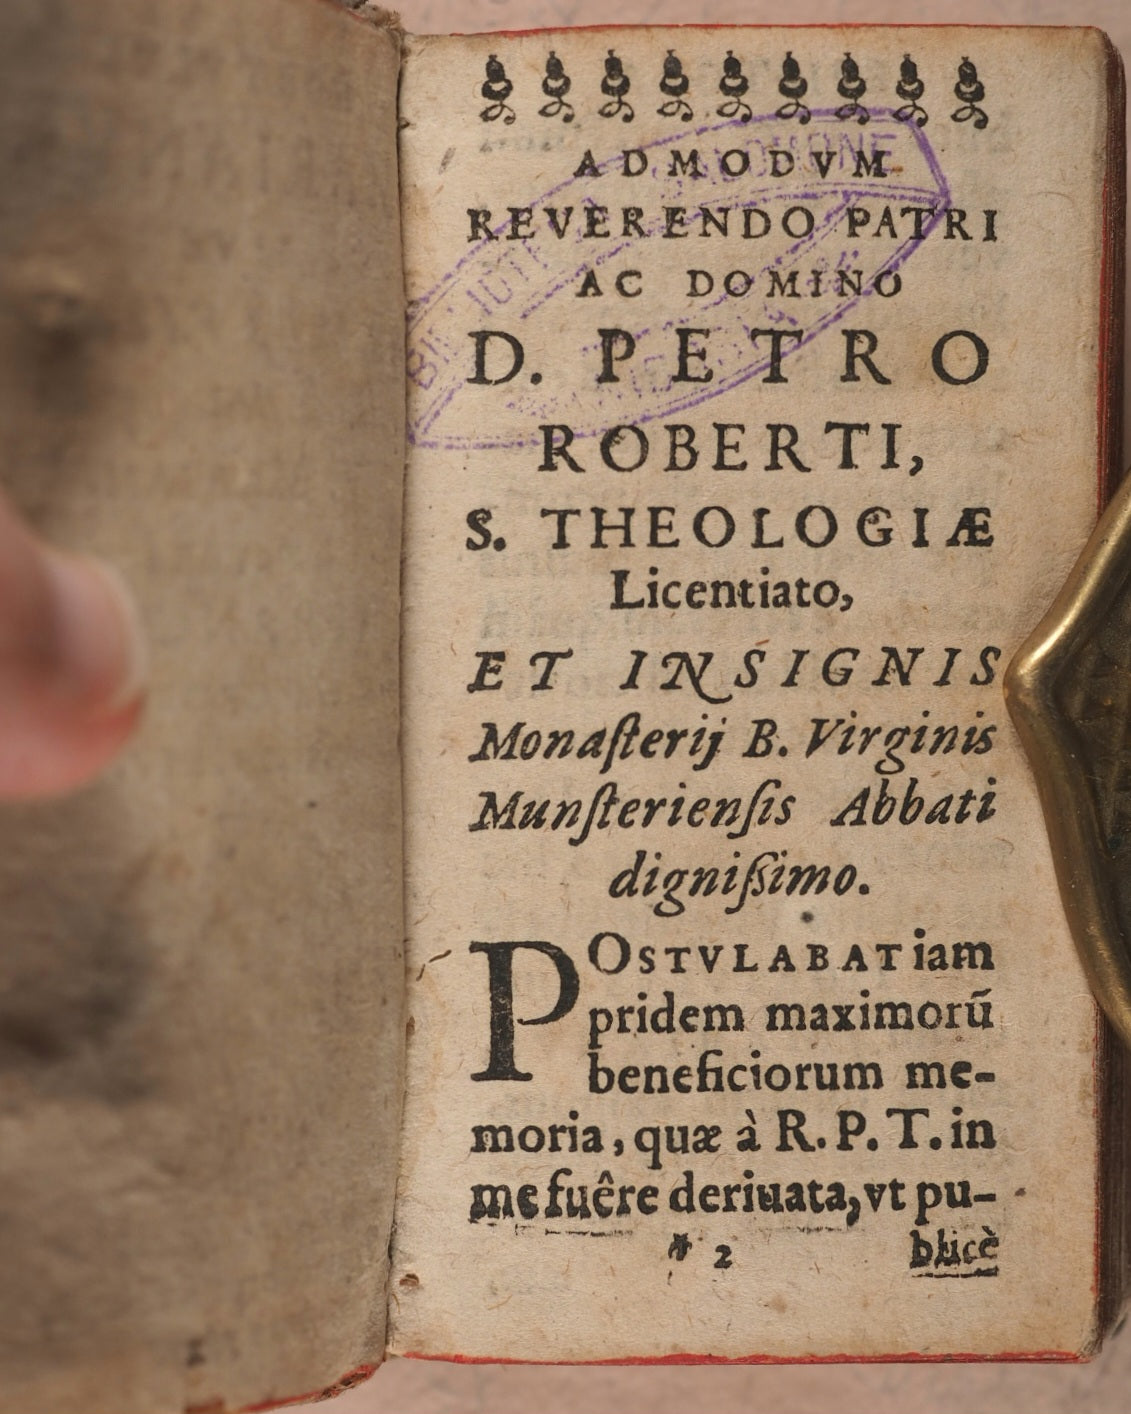 ADMODVM
REVERENDO PATRI
AC DOMINO
D. PETRO
ROBERTI,
S. THEOLOGIÆ
Licentiato,
ET INSIGNIS
Monaſterij B. Virginis
Munſterienſis Abbati
digniſſimo.
POSTVLABAT iam
pridem maximorũ
beneficiorum me-
moria, quæ à R. P. T. in
me fuêre deriuata, vt pu-
* 2 blicè